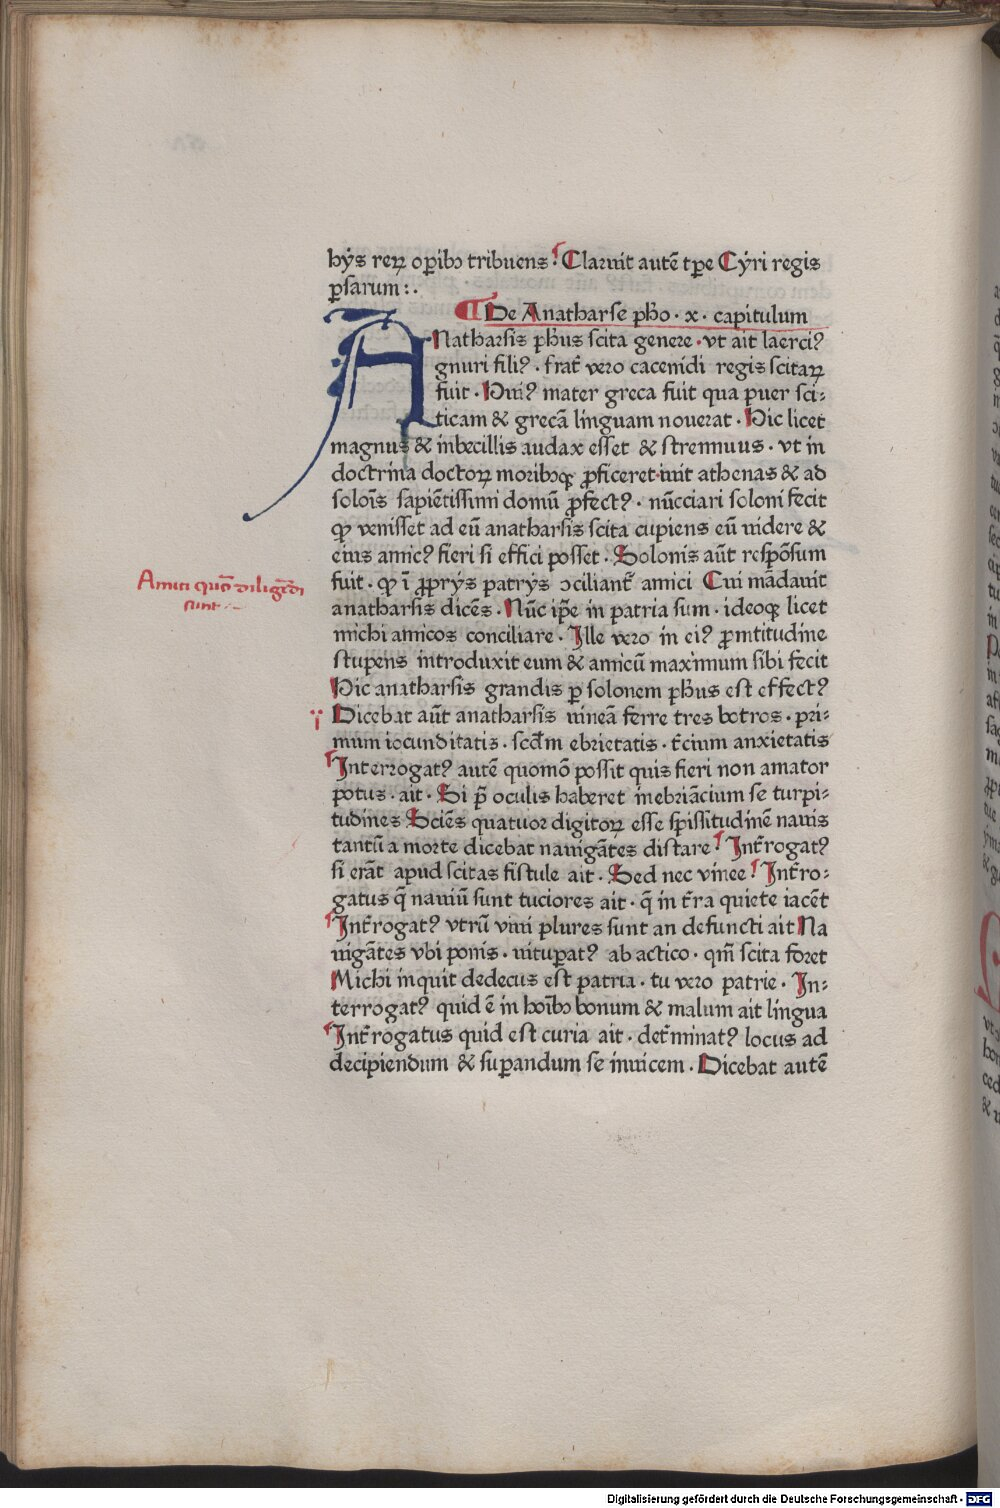 hys reꝝ opibꝰ tribuens. Claruit autē tꝑe Cyri regis
ꝑsarum :.
De Anatharse pħo · x · capitulum
ANatharsis pħus scita genere · vt ait laerciꝰ
gnuri filiꝰ · frat̄ vero cacenidi regis scitaꝝ
fuit · Huiꝰ mater greca fuit qua puer sci-
ticam & grecā linguam nouerat · Hic licet
magnus & inbecillis audax esset & strennuus · vt in
doctrina doctoꝝ moribꝰqꝫ ꝓficeret iuit athenas & ad
solōis sapiētissimi domū ꝓfectꝰ · nūcciari soloni fecit
qꝫ venisset ad eū anatharsis scita cupiens eū uidere &
eius amicꝰ fieri si effici posset · Solonis aūt respōsum
fuit · qꝫ ī ꝓprys patrys ↄciliant̄ amici Cui mādauit
Amici quō diligēdi
sunt
anatharsis dicēs · Nūc ip̄e in patria sum · ideoqꝫ licet
michi amicos conciliare · Ille vero in eiꝰ ꝓmtitudine
stupens introduxit eum & amicū maximum sibi fecit
Hic anatharsis grandis ꝑ solonem pħus est effectꝰ
Dicebat aūt anatharsis uineā ferre tres botros · pri-
mum iocunditatis · scd̄m ebrietatis · t̄cium anxietatis
Interrogatꝰ autē quomō possit quis fieri non amator
potus · ait · Si p̄ oculis haberet inebriācium se turpi-
tudines Sciēs quatuor digitoꝝ esse spissitudinē nauis
tantū a morte dicebat nauigātes distare. Int̄rogatꝰ
si erāt apud scitas fistule ait · Sed nec vinee. Int̄ro-
gatus q̄ nauiū sunt tuciores ait · q̄ in t̄ra quiete iacēt
Int̄rogatꝰ vtrū viui plures sunt an defuncti ait Na
uigātes vbi ponis · uituꝑatꝰ ab actico · qm̄ scita foret
Michi inquit dedecus est patria · tu vero patrie · In-
terrogatꝰ quid ē in hoībꝰ bonum & malum ait lingua
Int̄rogatus quid est curia ait · det̄minatꝰ locus ad
decipiendum & suꝑandum se inuicem · Dicebat autē
Digitalisierung gefördert durch die Deutsche Forschungsgemeinschaft - DFG